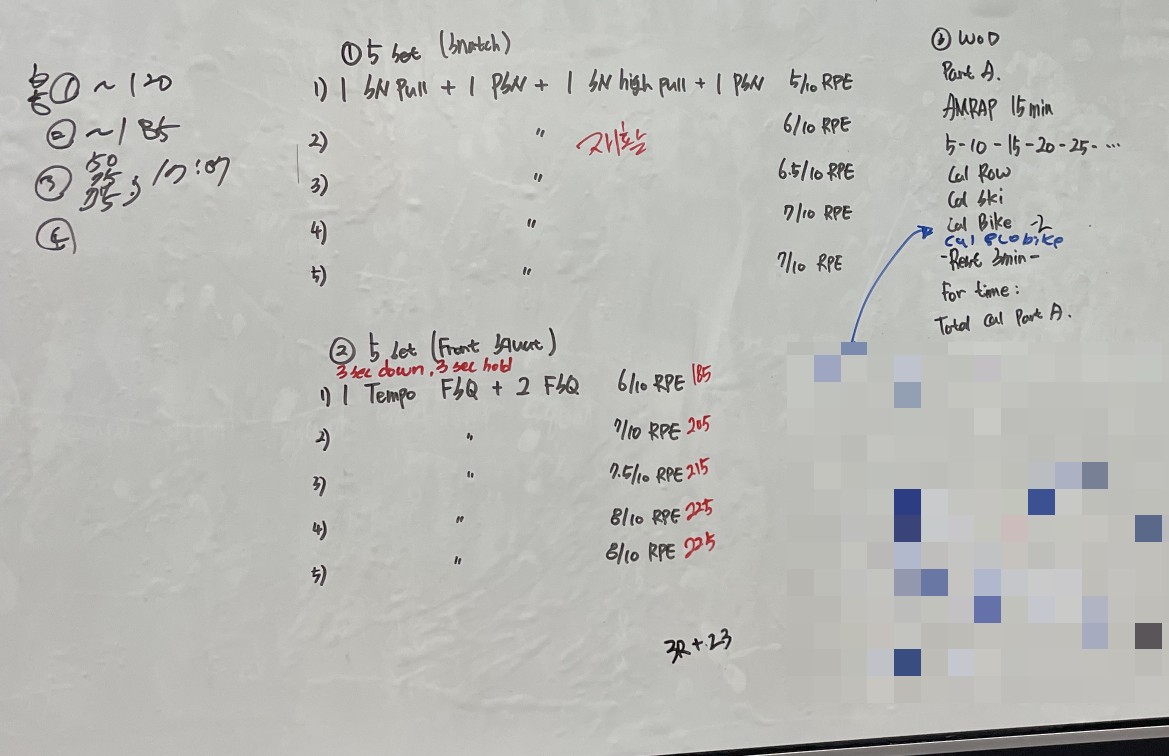 ① ~ 120
② ~ 185
③ 50
35
35, 17:07
④
① 5 set (snatch)
1) 1 SN Pull + 1 PSN + 1 SN high pull + 1 PSN 5/10 RPE
2) " 재활 6/10 RPE
3) " 6.5/10 RPE
4) " 7/10 RPE
5) " 7/10 RPE
② 5 set (Front squat)
3 sec down, 3 sec hold
1) 1 Tempo FSQ + 2 FSQ 6/10 RPE 185
2) " 7/10 RPE 205
3) " 7.5/10 RPE 215
4) " 8/10 RPE 225
5) " 8/10 RPE 225
3R + 23
③ WOD
Part A.
AMRAP 15 min
5-10-15-20-25-...
Cal Row
Cal Ski
Cal Bike
Cal echo bike
-Rest 3min-
For time:
Total Cal Part A.